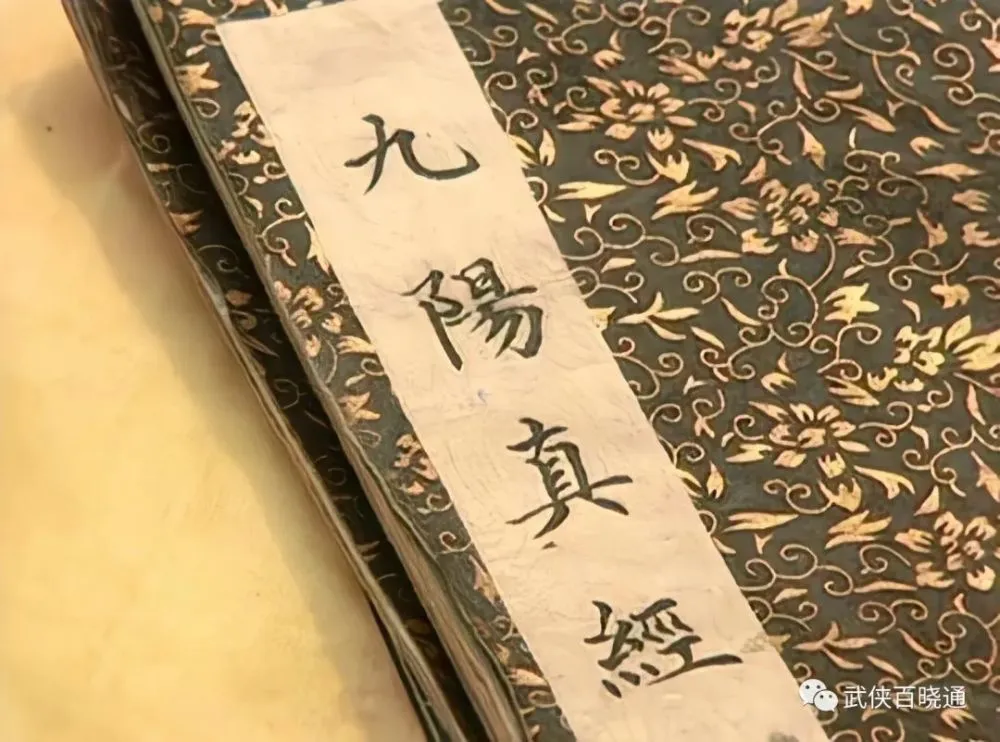 九陽真經
武侠百晓通